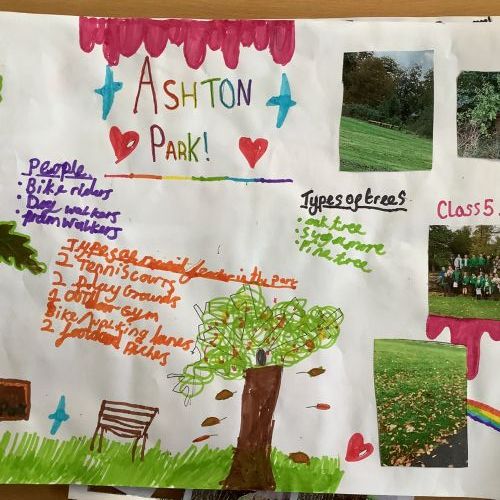 ASHTON
PARK!
People
• Bike riders
• Dog walkers
• pram walkers
Types of trees
• oak tree
• Sugamore
• Pine tree
Class 5
Types
in the park
2 Tennis courts
2 play Grounds
1 outdoor Gym
Bike/walking lanes
2 football Pitches